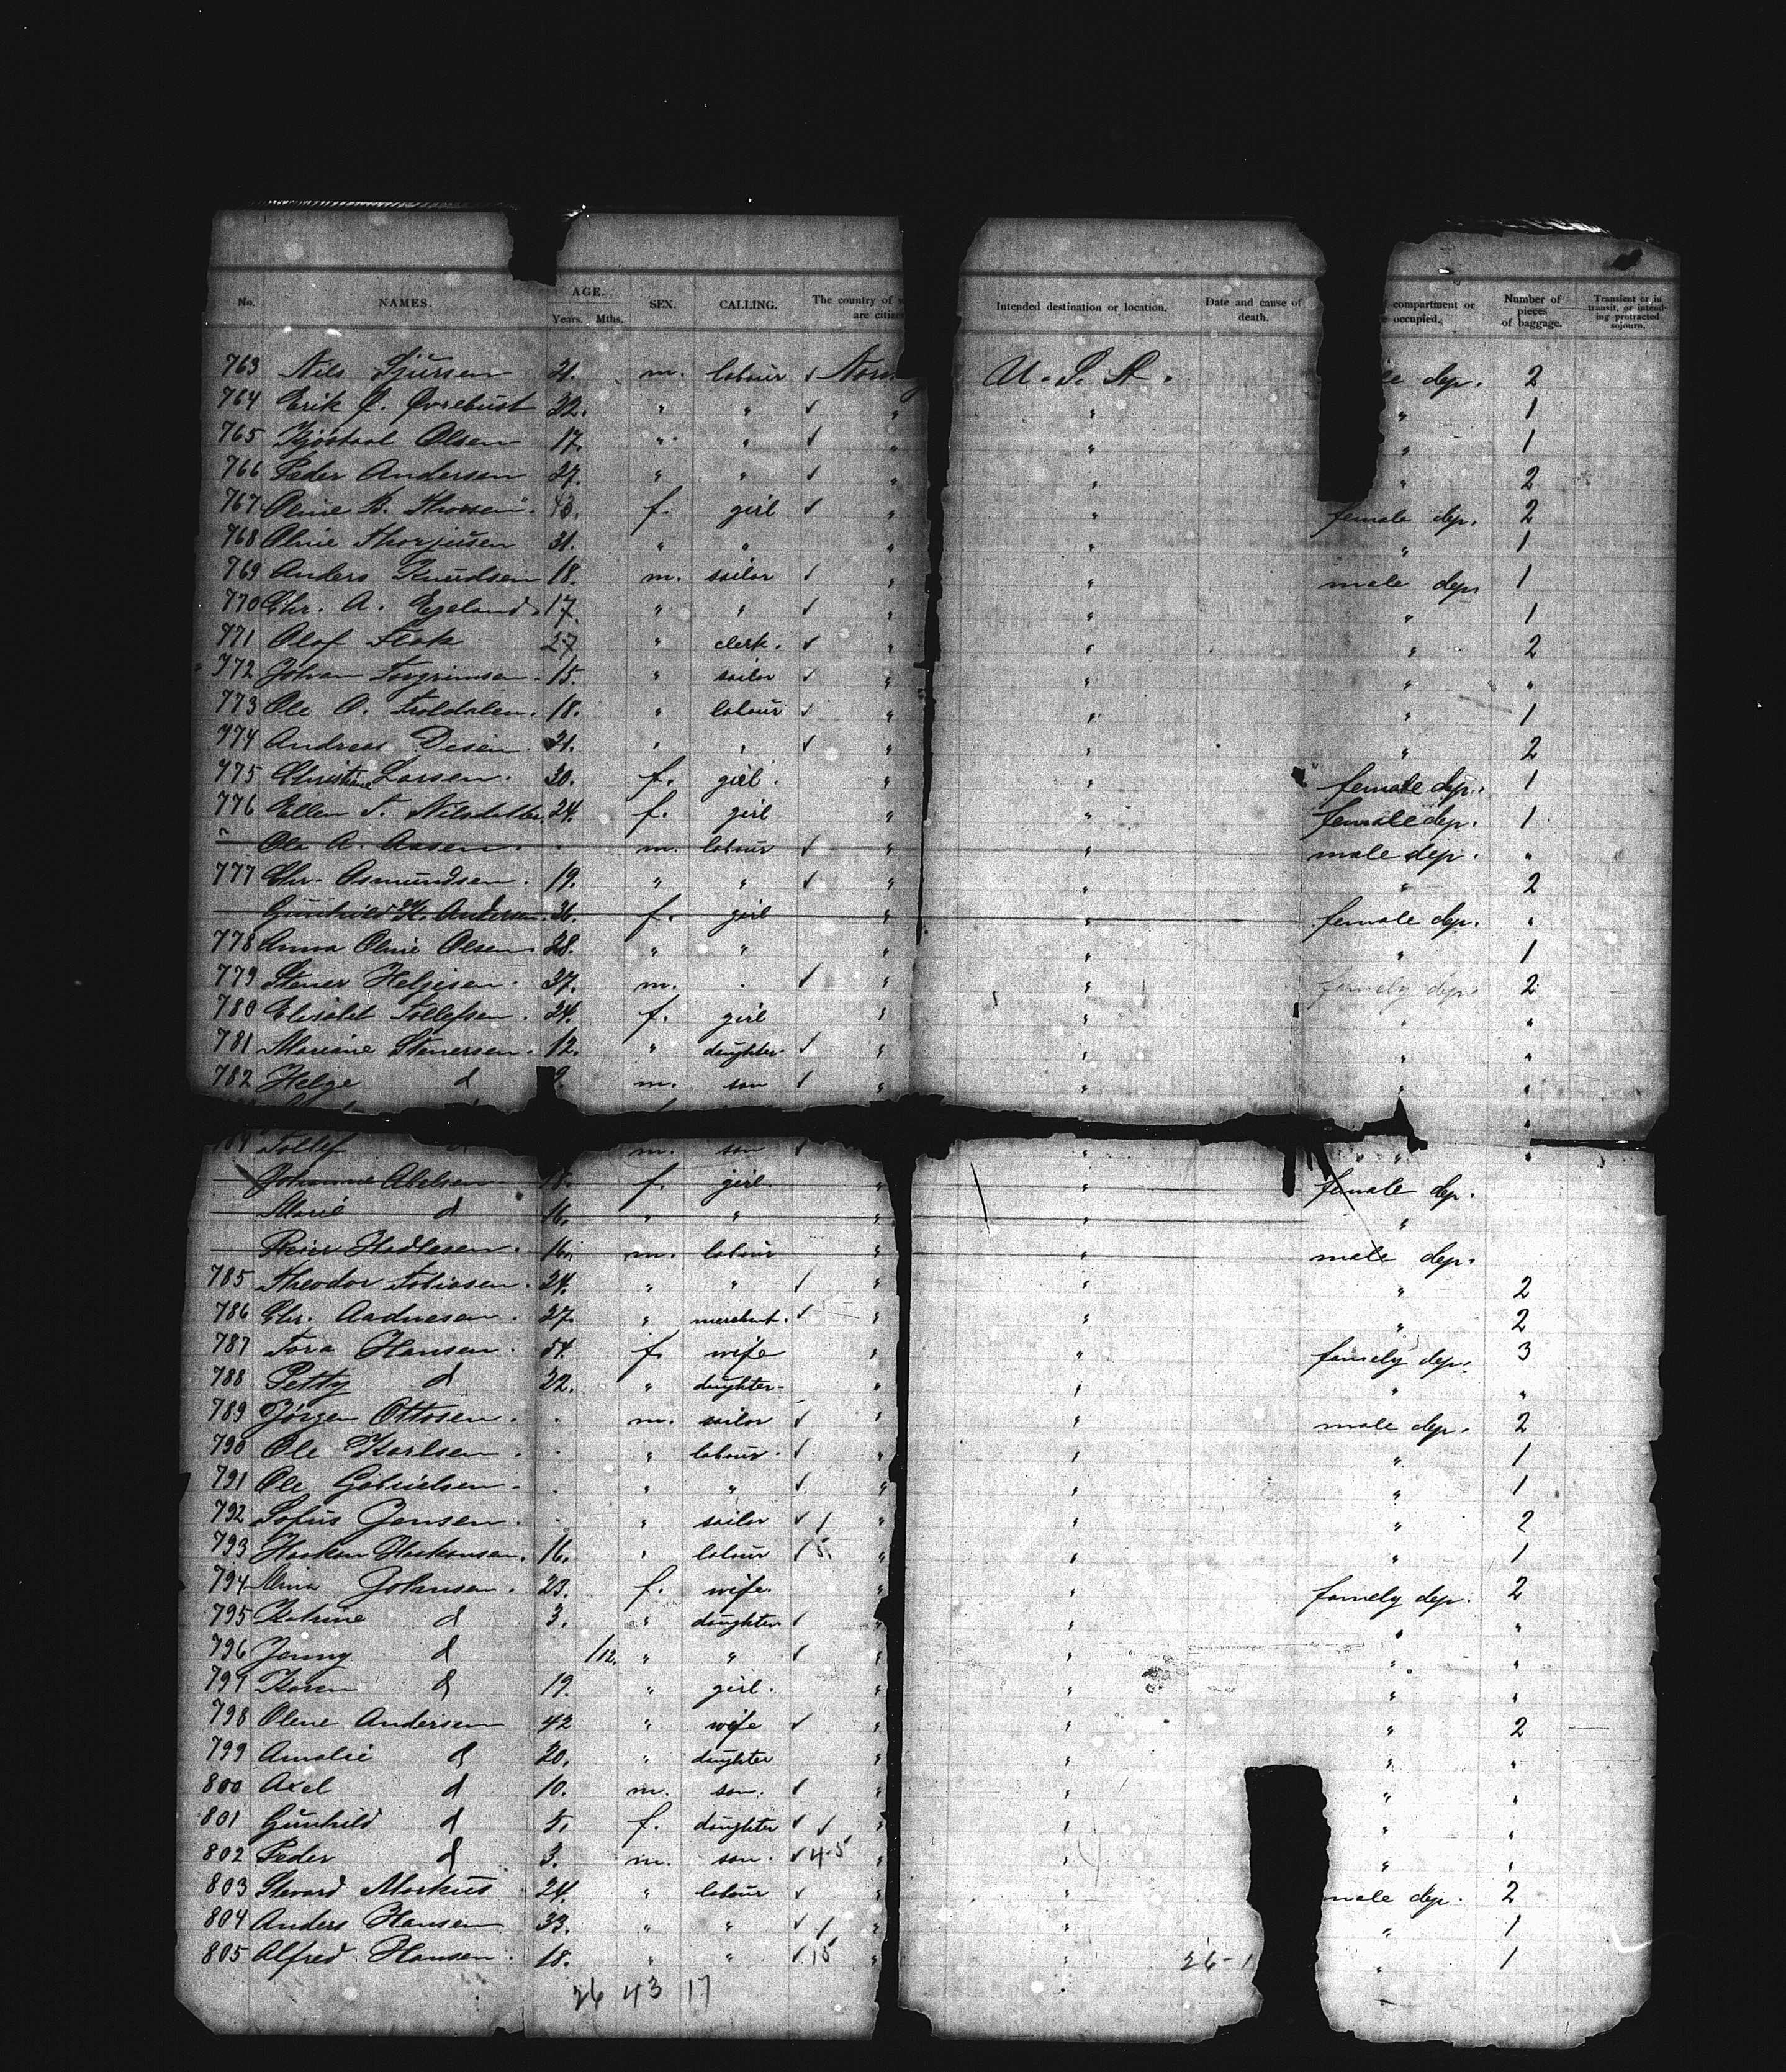 No. NAMES. AGE. Years. Mths. SEX. CALLING. The country of are citize Intended destination or location. Date and cause of death. compartment or occupied. Number of pieces of baggage. Transient or in transit, or intending protracted sojourn.
763 Nils Sjursen 21. m. labour ✓ Norw U. S. A. le dep. 2
764 Erik Øvrebust 32. " " ✓ " " " 1
765 Olsen 17. " " ✓ " " " 1
766 Peder Andersen 27. " " ✓ " " " 2
767 Oline B. 43. f. girl ✓ " " female dep. 2
768 Oline Thorjusen 31. " " " " " 1
769 Anders Knudsen 18. m. sailor ✓ " " male dep. 1
770 Chr. A. Egeland 17. " " ✓ " " " 1
771 Olaf 27 " clerk. ✓ " " " 2
772 Johan Torgrimsen 15. " sailor ✓ " " " "
773 Ole O. Troldalen. 18. " labour ✓ " " " 1
774 Andreas 21. " " ✓ " " " 2
775 Christine Larsen. 30. f. girl. " " female dep. 1
776 Ellen T. Nilsdatter. 24. f. girl " " female dep. 1
" Ole A. Aasen. . m. labour ✓ " " male dep. "
777 Chr. Osmundsen. 19. " " ✓ " " " 2
Gunhild K. Andersen. 36. f. girl " " female dep. "
778 Anna Oline Olsen. 28. " " " " " 1
779 Stener Helgesen. 37. m. . ✓ " " famely dep. 2
780 Tollefsen. 34. f. girl " " " "
781 Mariane Stenersen. 12. " daughter. ✓ " " " "
782 Helge d 9. m. son ✓ " " " "
784 Tollef d m. son ✓ " " "
Johanne Abelsen 18. f. girl. " " female dep.
Marie d 16. " " " " "
Hadlesen. 16. m. labour " " male dep.
785 Theodor Tobiasen. 24. " " ✓ " " " 2
786 Chr. Aadnesen. 27. " merchant. ✓ " " " 2
787 Tora Hansen. 54. f. wife " " famely dep. 3
788 Petty d 22. " daughter " " " "
789 Jørgen Ottosen. . m. sailor ✓ " " male dep. 2
790 Ole Karlsen. . " labour. ✓ " " " 1
791 Ole Gabrielsen. . " " ✓ " " " 1
792 Sofus Jensen. . " sailor ✓ / " " " 2
793 Haakon Haakonsen. 16. " labour ✓ 5 " " " 1
794 Johnsen. 23. f. wife. " " famely dep. 2
795 Katrine d 3. " daughter ✓ " " " "
796 Jenny d /12. " " ✓ " " " "
797 Karen d 19. " girl. " " " "
798 Olene Andersen 42 " wife ✓ " " " 2
799 Amalie d 20. " daughter " " " "
800 Axel d 10. m. son. ✓ " " " "
801 Gunhild d 5. f. daughter ✓ ✓ " " " "
802 Peder d 3. m. son. ✓ 4-5 " " " "
803 Markus 24. " labour ✓ " " male dep. 2
804 Anders Hansen 33. " " ✓ / " " " 1
805 Alfred Hansen. 18. " " ✓ 15 " " 26-1 " 1
26 43 17